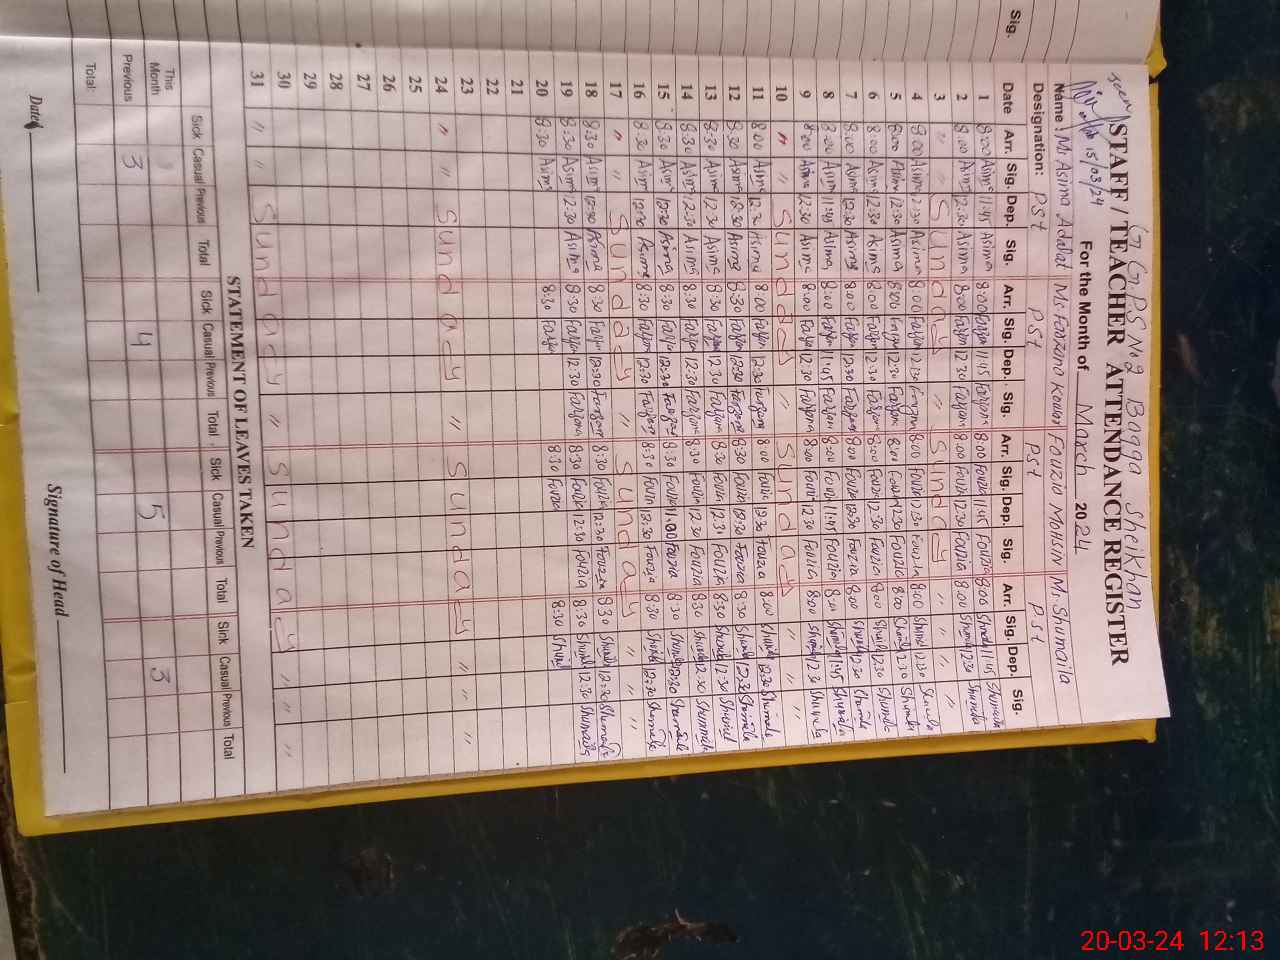 Sig.
G G.P.S No 2 Bagga Sheikhan
STAFF / TEACHER ATTENDANCE REGISTER
seen
15/03/24
For the Month of March 2024
Name : Ms Asima Adalat Ms Farzana Kousar Fouzia Mohsin M. Shumaila
Designation: PSt PSt PSt PSt
Date Arr. Sig. Dep. Sig. Arr. Sig. Dep. Sig. Arr. Sig. Dep. Sig. Arr. Sig. Dep. Sig.
1 8:00 Asima 11:45 Asima 8:00 Farzan 11:45 Farzana 8:00 Fouzia 11:45 Fouzia 8:00 Shumail 11:45 Shumaila
2 8:00 Asima 12:30 Asima 8:00 Farzan 12:30 Farzana 8:00 Fouzia 12:30 Fouzia 8:00 Shumaila 12:30 Shumaila
3 " " Sunday " Sunday " " "
4 8:00 Asima 12:30 Asima 8:00 Farzana 12:30 Farzana 8:00 Fouzia 12:30 Fouzia 8:00 Shumail 12:30 Shumaila
5 8:00 Asima 12:30 Asima 8:00 Farzan 12:30 Farzana 8:00 Fouzia 12:30 Fouzia 8:00 Shumail 12:30 Shumaila
6 8:00 Asima 12:30 Asima 8:00 Farzan 12:30 Farzana 8:00 Fouzia 12:30 Fouzia 8:00 Shumaila 12:30 Shumaila
7 8:00 Asima 12:30 Asima 8:00 Farzan 12:30 Farzana 8:00 Fouzia 12:30 Fouzia 8:00 Shumail 12:30 Shumaila
8 8:00 Asima 11:45 Asima 8:00 Farzan 11:45 Farzana 8:00 Fouzia 11:45 Fouzia 8:00 Shumaila 11:45 Shumaila
9 8:00 Asima 12:30 Asima 8:00 Farzan 12:30 Farzana 8:00 Fouzia 12:30 Fouzia 8:00 Shumaila 12:30 Shumaila
10 " " Sunday " Sunday " "
11 8:00 Asima 12:30 Asima 8:00 Farzan 12:30 Farzana 8:00 Fouzia 12:30 Fouzia 8:00 Shumaila 12:30 Shumaila
12 8:30 Asima 12:30 Asima 8:30 Farzan 12:30 Farzana 8:30 Fouzia 12:30 Fouzia 8:30 Shumail 12:30 Shumaila
13 8:30 Asima 12:30 Asima 8:30 Farzan 12:30 Farzana 8:30 Fouzia 12:31 Fouzia 8:30 Shumail 12:30 Shumail
14 8:30 Asima 12:30 Asima 8:30 Farzan 12:30 Farzana 8:30 Fouzia 12:30 Fouzia 8:30 Shumaila 12:30 Shummaila
15 8:30 Asima 12:30 Asima 8:30 Farzan 12:30 Farzana 8:30 Fouzia 11:00 Fouzia 8:30 Shumail 12:30 Shumaila
16 8:30 Asima 12:30 Asima 8:30 Farzan 12:30 Farzana 8:30 Fouzia 12:30 Fouzia 8:30 Shumail 12:30 Shumaila
17 " " Sunday " Sunday " "
18 8:30 Asima 12:30 Asima 8:30 Farzan 12:30 Farzana 8:30 Fouzia 12:30 Fouzia 8:30 Shumaila 12:30 Shumaila
19 8:30 Asima 12:30 Asima 8:30 Farzan 12:30 Farzana 8:30 Fouzia 12:30 Fouzia 8:30 Shumail 12:30 Shumaila
20 8:30 Asima 8:30 Farzan 8:30 Fouzia 8:30 Shumail
21
22
23
24 " " Sunday " Sunday " "
25
26
27
28
29
30
31 " " Sunday " Sunday " "
STATEMENT OF LEAVES TAKEN
Sick Casual Previous Total Sick Casual Previous Total Sick Casual Previous Total Sick Casual Previous Total
This Month 5 3
Previous 3 4
Total:
Dated Signature of Head
20-03-24 12:13